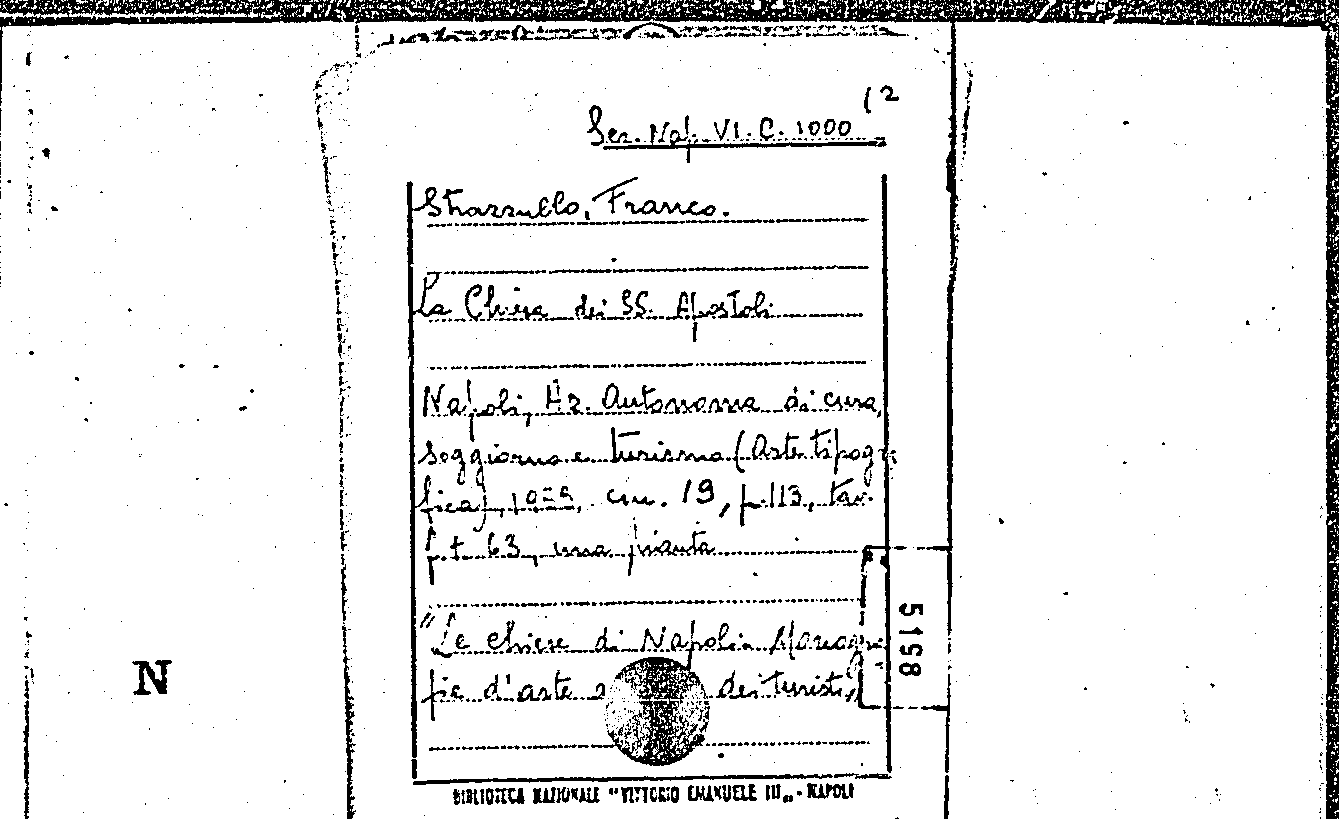 (2
Sez. Nap. VI. C. 1000
Strazzullo, Franco.
La Chiesa dei SS. Apostoli
Napoli, Az. Autonoma di cura,
soggiorno e turismo (Arte tipogra
fica), cm. 19, p. 113, tav.
f.t. 63, una pianta
"Le chiese di Napoli. Monogra
fie d'arte dei turisti"
5198
N
BIBLIOTECA NAZIONALE "VITTORIO EMANUELE III„ - NAPOLI